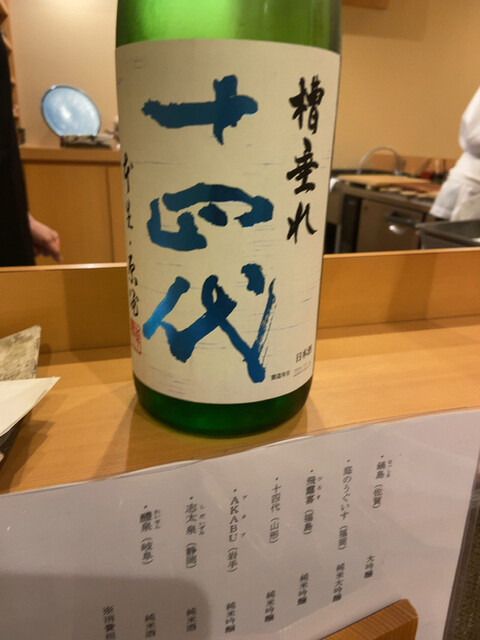 槽垂れ
十四代
本生・原酒
日本酒
製造年月
・鍋島（佐賀） 大吟醸
・庭のうぐいす（福岡） 純米大吟醸
・飛露喜（福島） 純米吟醸
・十四代（山形） 純米吟醸
・AKABU（岩手） 純米吟醸
・志太泉（静岡） 純米酒
・醴泉（岐阜） 純米酒